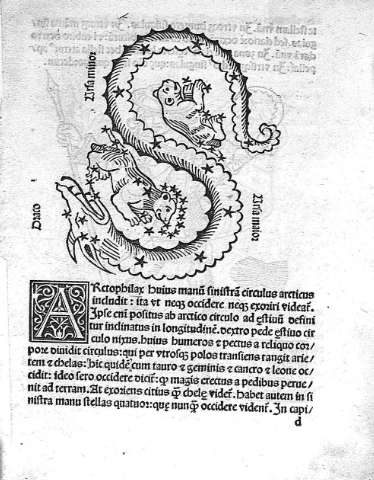 Ursa maior
Draco
Ursa maior
ARctophilax huius manū sinistrā circulus arcticus
includit: ita vt neq; occidere neq; exoriri videať.
Ipse eni positus ab arctico circulo ad estiuū defini
tur inclinatus in longitudinē. dextro pede estiuo cir
culo nixus. huius humeros & pectus a reliquo cor⸗
pore diuidit circulus: qui per vtrosq; polos transiens tangit arie⸗
tem & chelas: hic quidē cum tauro & geminis & cancro & leone oc⸗
cidit: ideo sero occidere diciť: ꝙ magis erectus a pedibus perue⸗
nit ad terram. At exoriens citius ꝙ̄ chele videť. Habet autem in si
nistra manu stellas quatuor: que nunꝙ̄ occidere videnť. In capi⸗
d